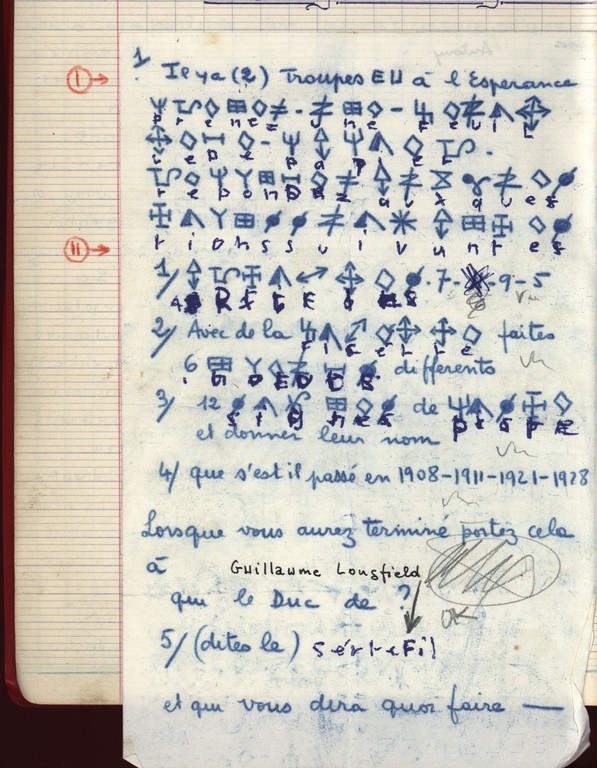 1
I
Il y a (2) Troupes EU à l'Esperance
prenez - une - Feuil
le de - papier.
repondez aux ques
tions suivantes
II
1/ 7-8-9-5
2/ Avec de la Ficelle faites
6 noeuds differents
3/ 12 signes de piste
et donner leur nom
4/ que s'est il passé en 1908-1911-1921-1928
Lorsque vous aurez terminé portez cela
à Guillaume Longfield
qui le Duc de ?
OK
5/ (dites le)
et qui vous dira quoi faire —